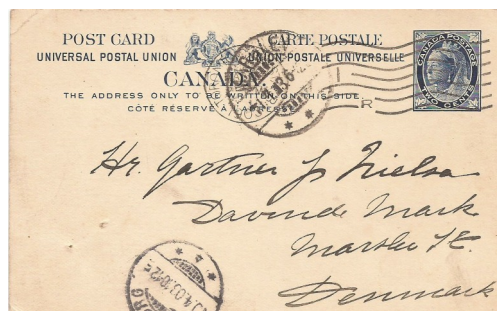 POST CARD CARTE POSTALE
UNIVERSAL POSTAL UNION UNION POSTALE UNIVERSELLE
CANADA
THE ADDRESS ONLY TO BE WRITTEN ON THIS SIDE.
CÔTÉ RÉSERVÉ À L'ADRESSE
CANADA POSTAGE
TWO CENTS
R
Hr. Gartner J. Nielsen
Davinde Mark
Marslev St.
Denmark